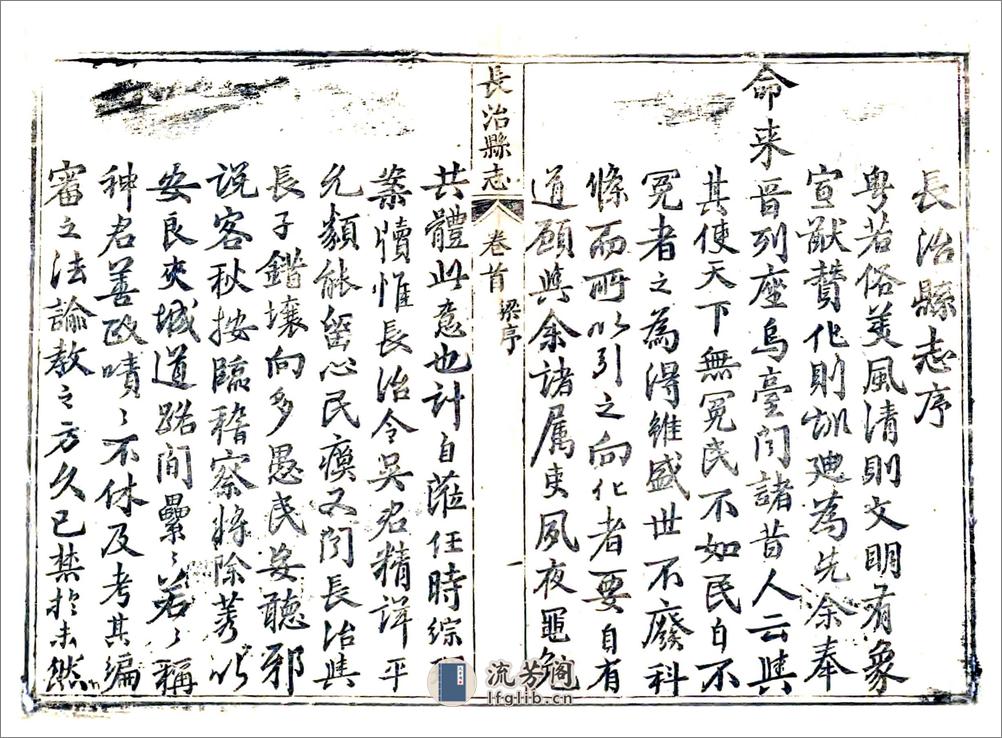 長治縣志序
粤若俗美風清則文明有象
宣猷贊化則訓廸為先余奉
命来晋列座烏臺聞諸昔人云與
其使天下無冤民不如民自不
冤者之為得雖盛世不廢科
條而所以引之向化者要自有
道顧與余諸属吏夙夜黽勉
長治縣志
卷首
梁序
一
共體此意也計自蒞任時綜
案牘惟長治令吴君精詳平
允頗能留心民瘼又聞長治與
長子錯壤向多愚民妄聽邪
説客秋按臨稽察将除莠以
安良夾城道路間纍〻若〻稱
神君善政嘖〻不休及考其編
審之法諭教之方久已禁於未然
流芳阁
lfglib.cn